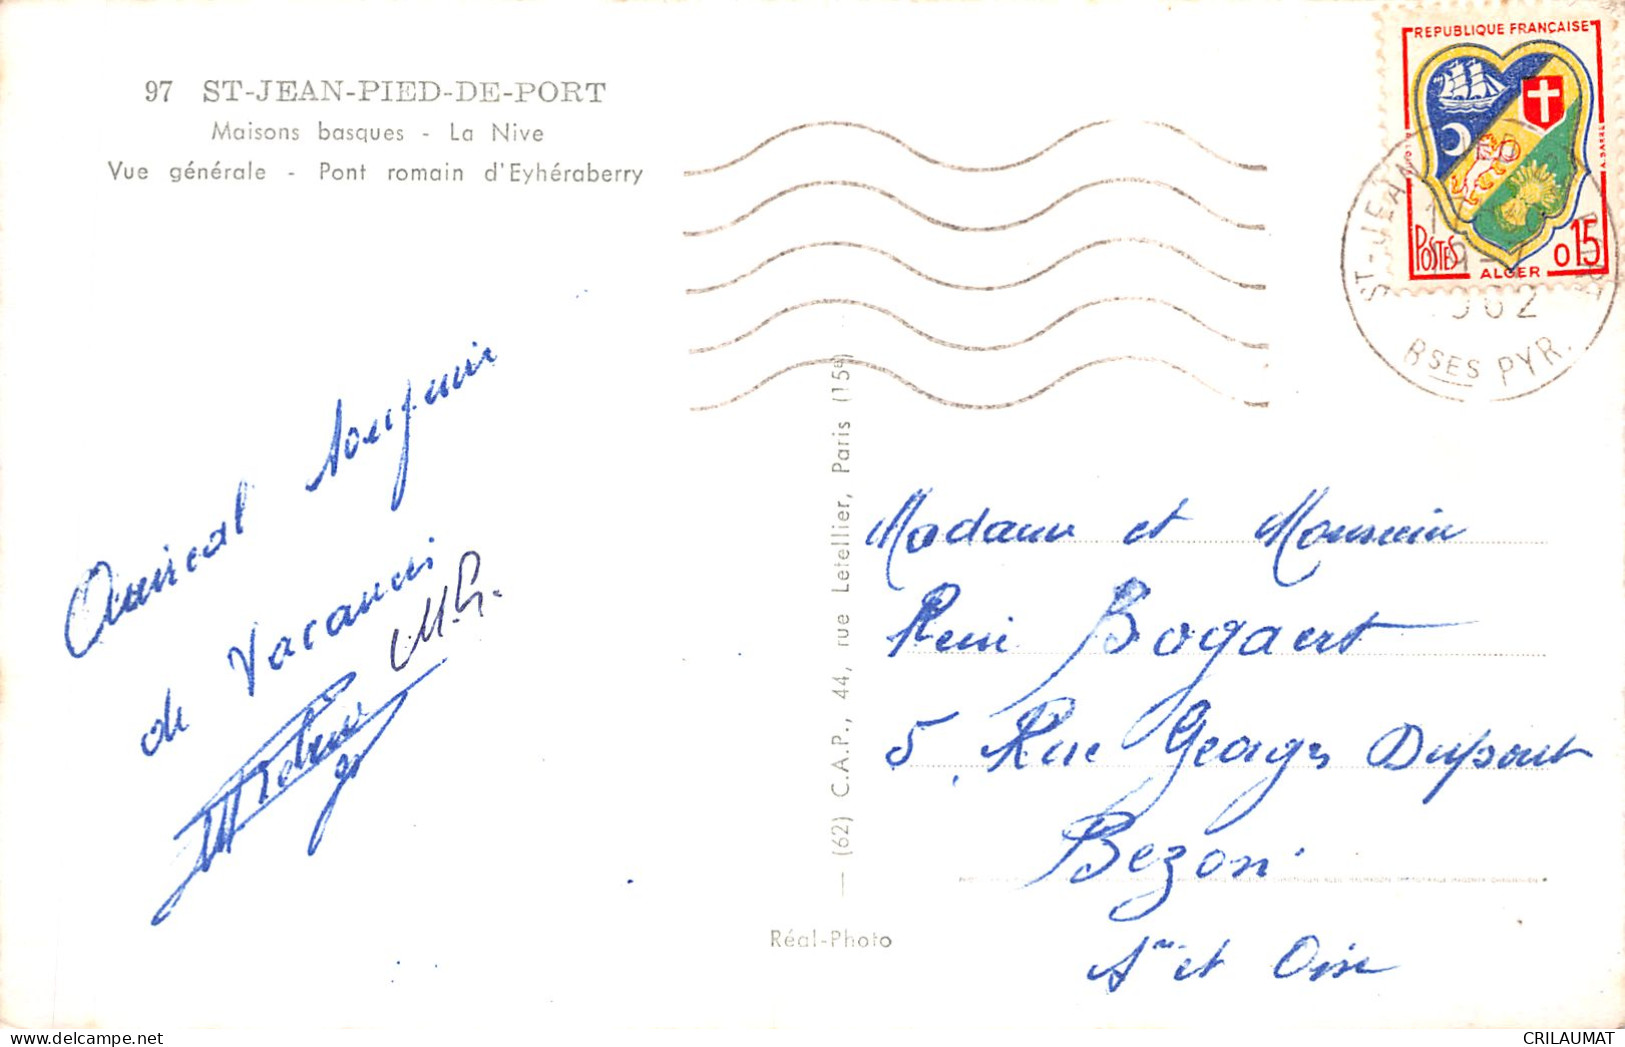 97 ST-JEAN-PIED-DE-PORT
Maisons basques - La Nive
Vue générale - Pont romain d'Eyhéraberry
REPUBLIQUE FRANÇAISE
POSTES
ALGER
0,15
ST-JEAN PIED
1962
BSES PYR.
Amical souvenir
de Vacances
M.P.
— (62) C.A.P., 44, rue Letellier, Paris (15e)
Réal-Photo
Madame et Monsieur
René Bogaert
5, Rue Georges Dupont
Bezons
S ne et Oise
CRILAUMAT